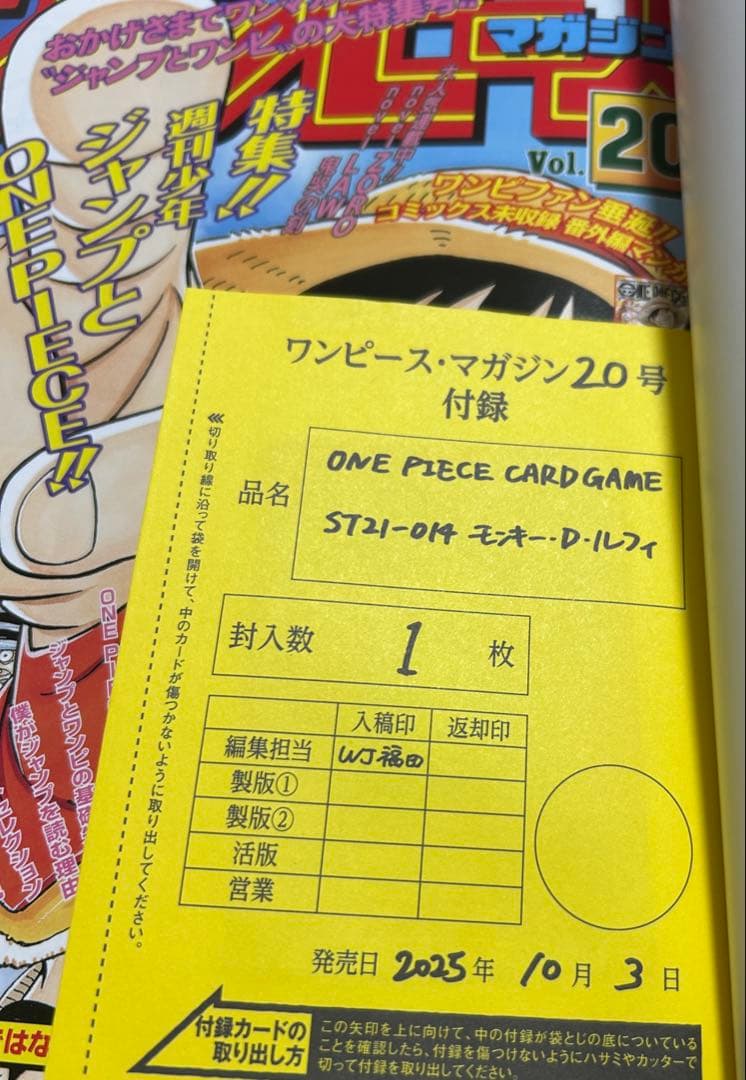 おかげさまでワンマガ
"ジャンプとワンピ"の大特集号!!
マガジン
Vol. 20
特集!!
週刊少年
ジャンプと
ONE PIECE!!
大人気連載中!!
novel ZORO
novel LAW
ワンピファン垂涎!!
コミックス未収録 番外編マンガ
ワンピース・マガジン20号
付録
品名
ONE PIECE CARD GAME
ST21-014 モンキー・D・ルフィ
封入数 1 枚
入稿印 返却印
編集担当 WJ福田
製版①
製版②
活版
営業
発売日 2025年 10月 3日
≪切り取り線に沿って袋を開けて、中のカードが傷つかないように取り出してください。
付録カードの
取り出し方
この矢印を上に向けて、中の付録が袋とじの底についている
ことを確認したら、付録を傷つけないようにハサミやカッターで
切って付録を取り出してください。
ONE PI
ジャンプとワンピの基礎
僕がジャンプを読む理由
セレクション
ではな